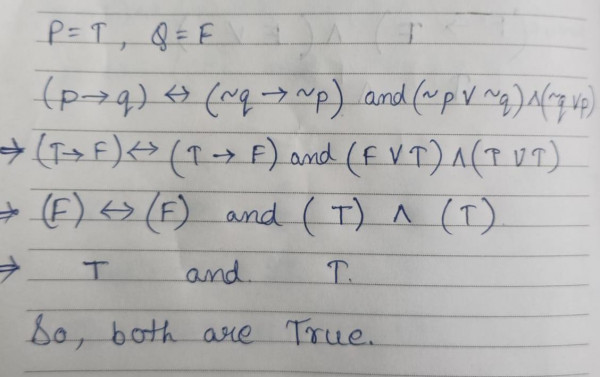 P = T , Q = F
(p → q) ↔ (~q → ~p) and (~p ∨ ~q) ∧ (~q ∨ p)
⇒ (T → F) ↔ (T → F) and (F ∨ T) ∧ (T ∨ T)
⇒ (F) ↔ (F) and (T) ∧ (T)
⇒ T and T.
So, both are True.